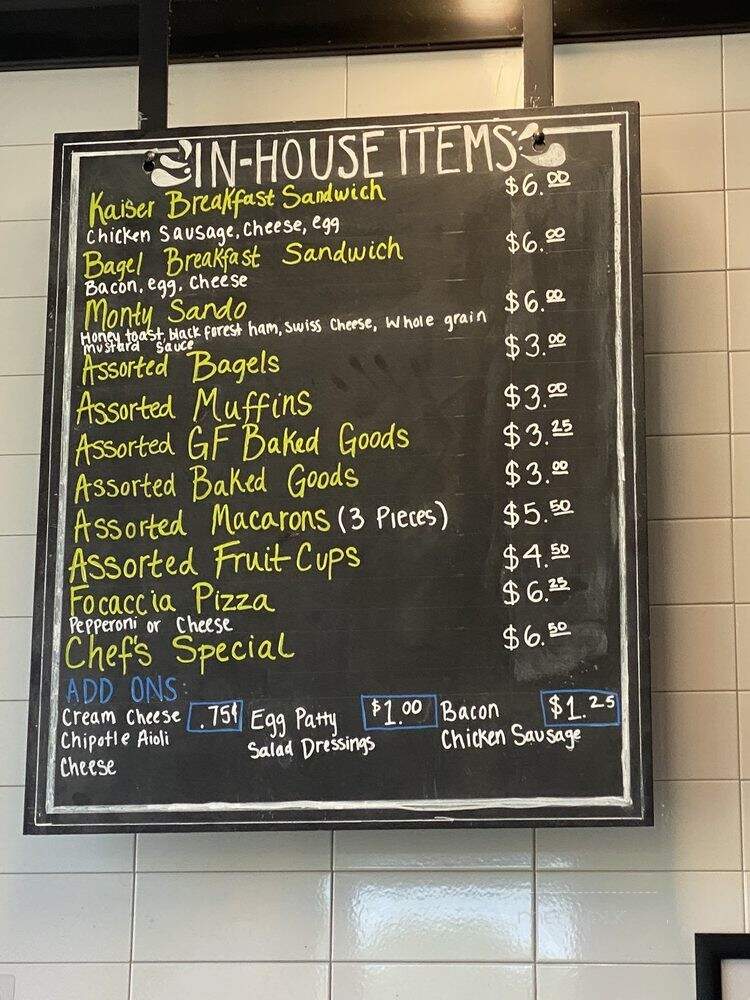 IN-HOUSE ITEMS
Kaiser Breakfast Sandwich $6.00
Chicken Sausage, Cheese, egg
Bagel Breakfast Sandwich $6.00
Bacon, egg, Cheese
Monty Sando $6.00
Honey toast, black forest ham, Swiss Cheese, Whole grain
mustard sauce
Assorted Bagels $3.00
Assorted Muffins $3.00
Assorted GF Baked Goods $3.25
Assorted Baked Goods $3.00
Assorted Macarons (3 Pieces) $5.50
Assorted Fruit Cups $4.50
Focaccia Pizza $6.25
Pepperoni or Cheese
Chef's Special $6.50
ADD ONS:
Cream Cheese .75¢ Egg Patty $1.00 Bacon $1.25
Chipotle Aioli Salad Dressings Chicken Sausage
Cheese